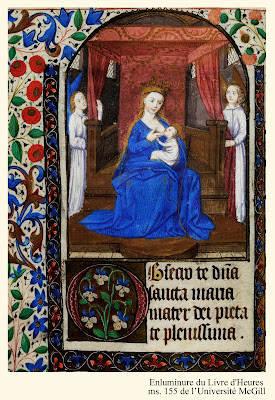 Obsecro te dña
sancta maria
mater dei pieta
te plenissima .
Enluminure du Livre d'Heures
ms. 155 de l'Université McGill